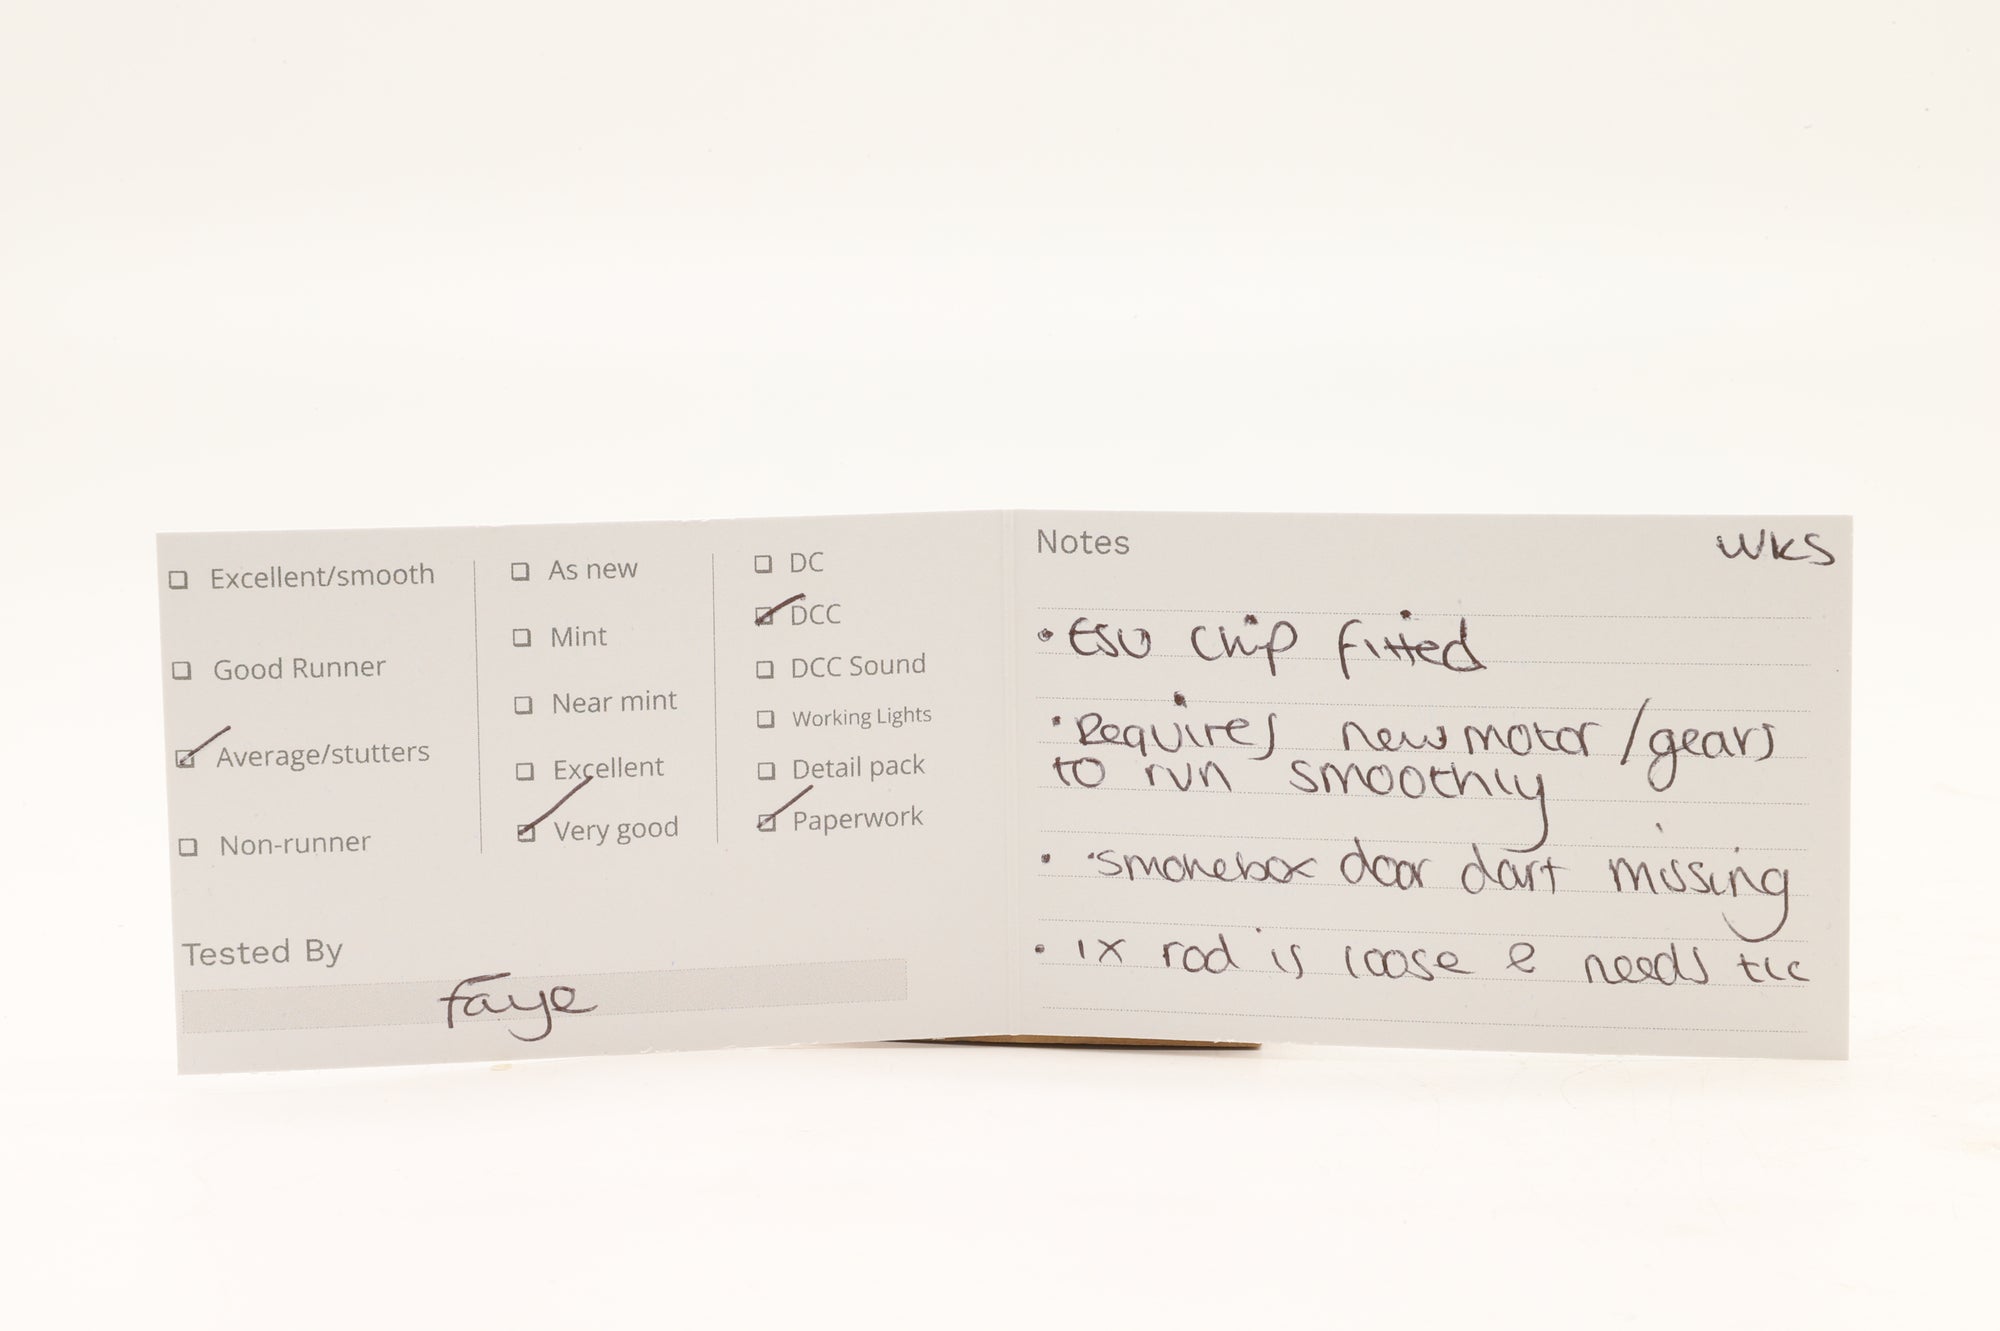 Excellent/smooth
Good Runner
Average/stutters
Non-runner
As new
Mint
Near mint
Excellent
Very good
DC
DCC
DCC Sound
Working Lights
Detail pack
Paperwork
Tested By
faye
Notes
WKS
• ESU chip fitted
• Requires new motor/gears
to run smoothly
• smokebox door dart missing
• 1x rod is loose & needs tlc